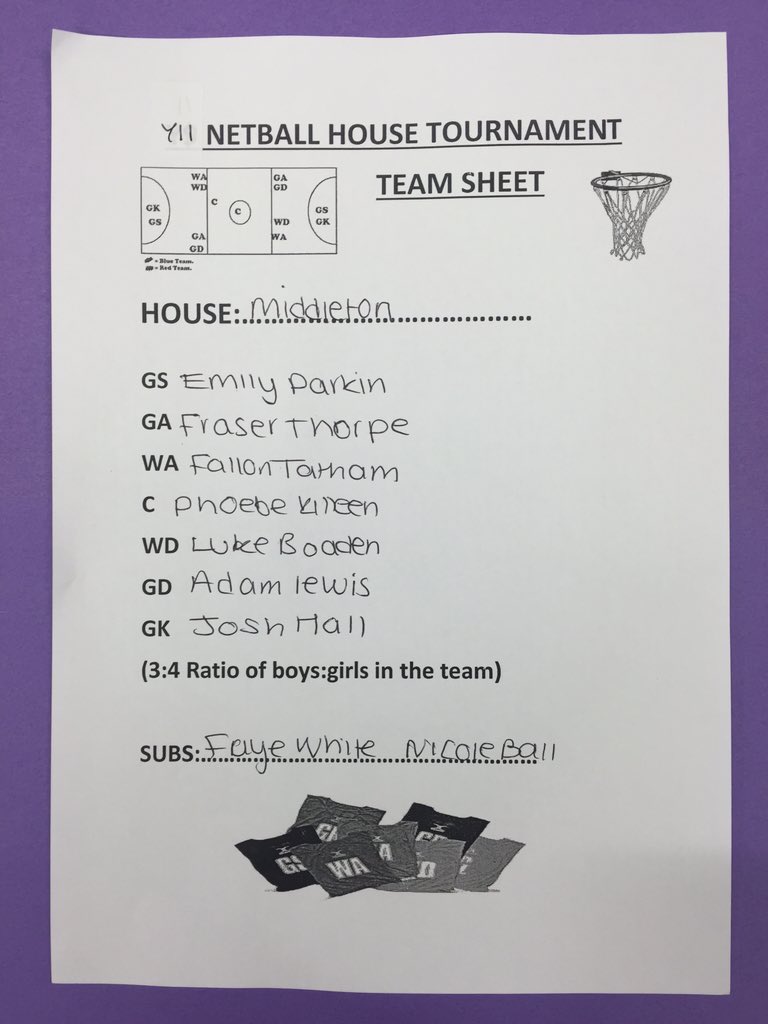 Y11 NETBALL HOUSE TOURNAMENT
TEAM SHEET
WA GA
WD GD
C
GK C GS
GS WD GK
GA WA
GD
= Blue Team.
= Red Team.
HOUSE: Middleton
GS Emily Parkin
GA Fraser Thorpe
WA Fallon Tatham
C Phoebe Kireen
WD Luke Booden
GD Adam lewis
GK Josh Hall
(3:4 Ratio of boys:girls in the team)
SUBS: Faye White Nicole Ball
GS WA A D